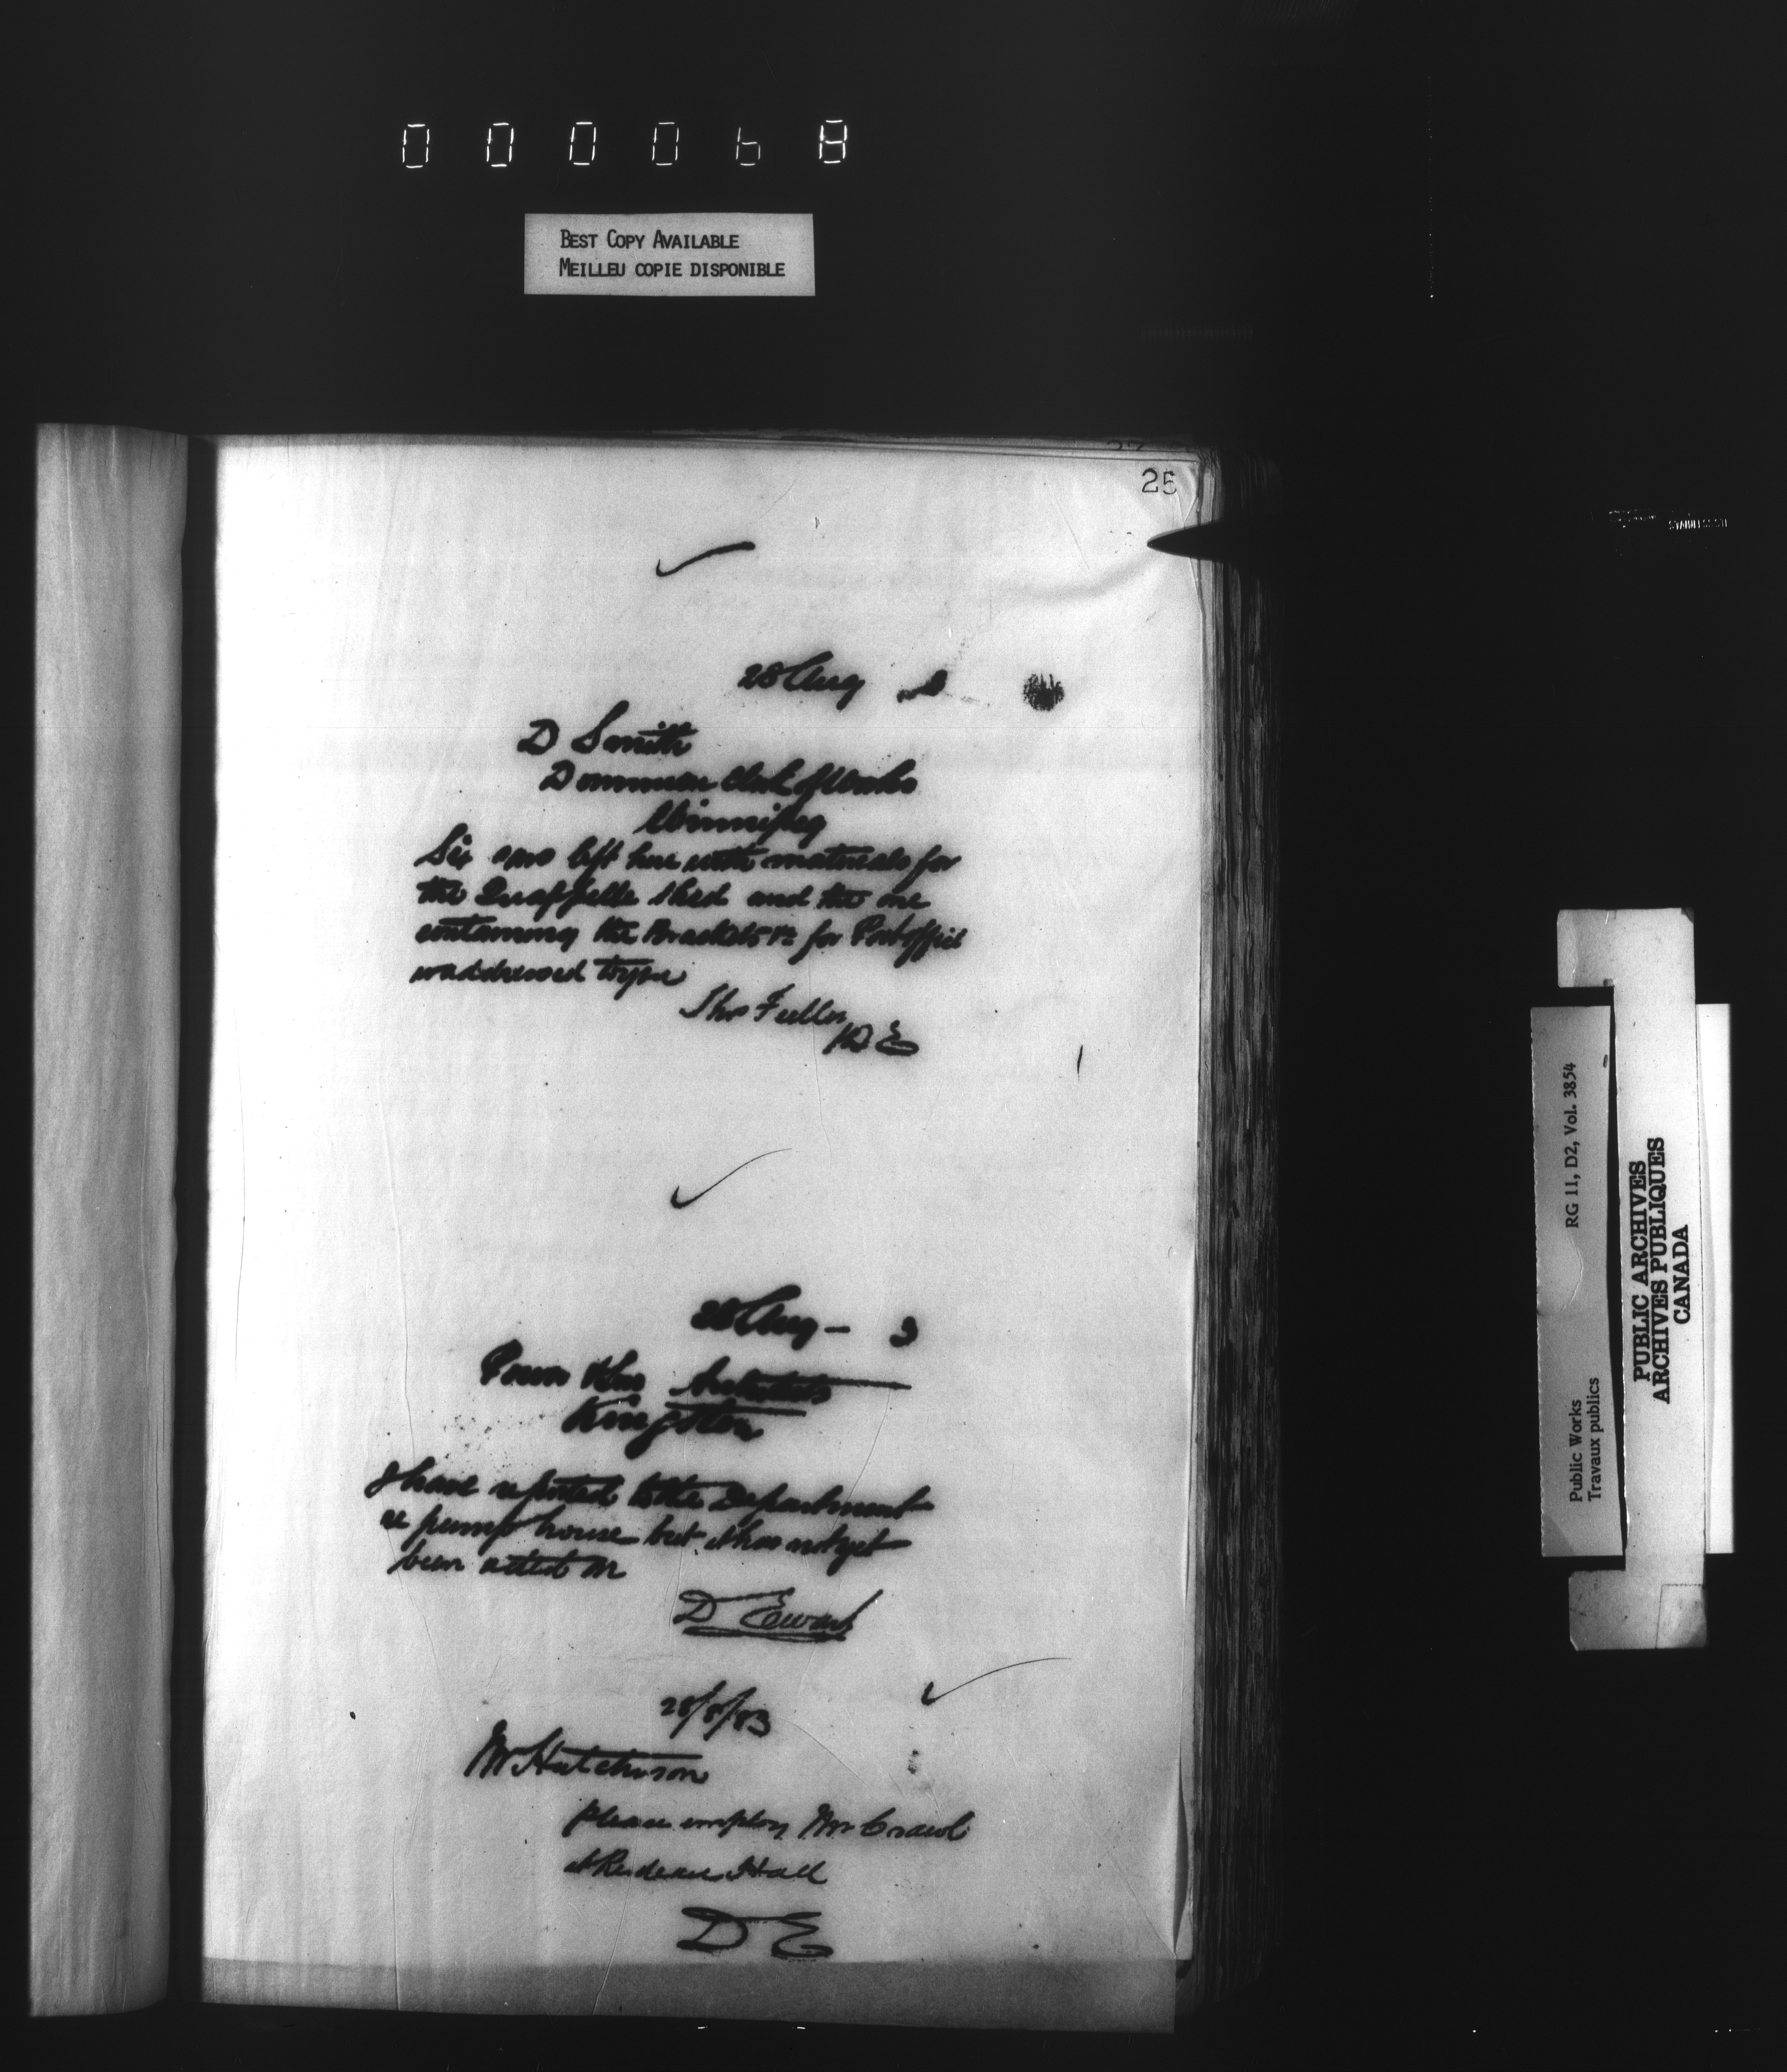 000068
BEST COPY AVAILABLE
MEILLEU COPIE DISPONIBLE
25
28 Aug 3
D Smith
Dominion Clerk of Works
Winnipeg
Six cars left here with materials for
the Quappelle shed and the one
containing the Brackets &c for Postoffice
was addressed to you
Thos Fuller
D E
28 Aug — 3
Power & Son Architects
Kingston
I have reported to the Department
re pump house but it has not yet
been acted on
D Ewart
28/8/83
Mr Hutchison
please employ Mr
at Rideau Hall
D E
RG 11, D2, Vol. 3854
Public Works
Travaux publics
PUBLIC ARCHIVES
ARCHIVES PUBLIQUES
CANADA